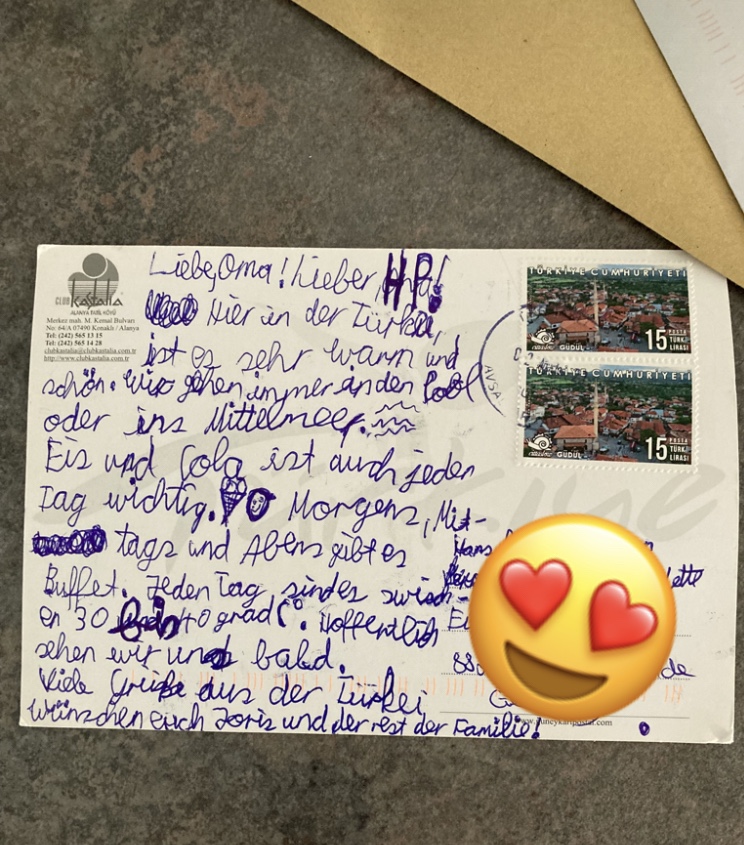 Liebe Oma! Lieber HP!
Hier in der Türkei,
ist es sehr warm und
schön. Wir gehen immer in den Pool
oder ins Mittelmeer.
Eis und Cola ist auch jeden
Tag wichtig. Morgens, Mit-
tags und Abens gibt es
Buffet. Jeden Tag sind es zwisch-
en 30 bis 40 grad C°. Hoffentlich
sehen wir uns bald.
Viele Grüße aus der Türkei
wünschen euch Joris und der rest der Familie!
CLUB kastalia
ALANYA TATİL KÖYÜ
Merkez mah. M. Kemal Bulvarı
No: 64/A 07490 Konaklı / Alanya
Tel: (242) 565 13 15
Tel: (242) 565 14 28
clubkastalia@clubkastalia.com.tr
http://www.clubkastalia.com.tr
TÜRKİYE CUMHURİYETİ
15 POSTA
TÜRK
LİRASI
GÜDÜL
TÜRKİYE CUMHURİYETİ
15 POSTA
TÜRK
LİRASI
GÜDÜL
AVSA
Hans